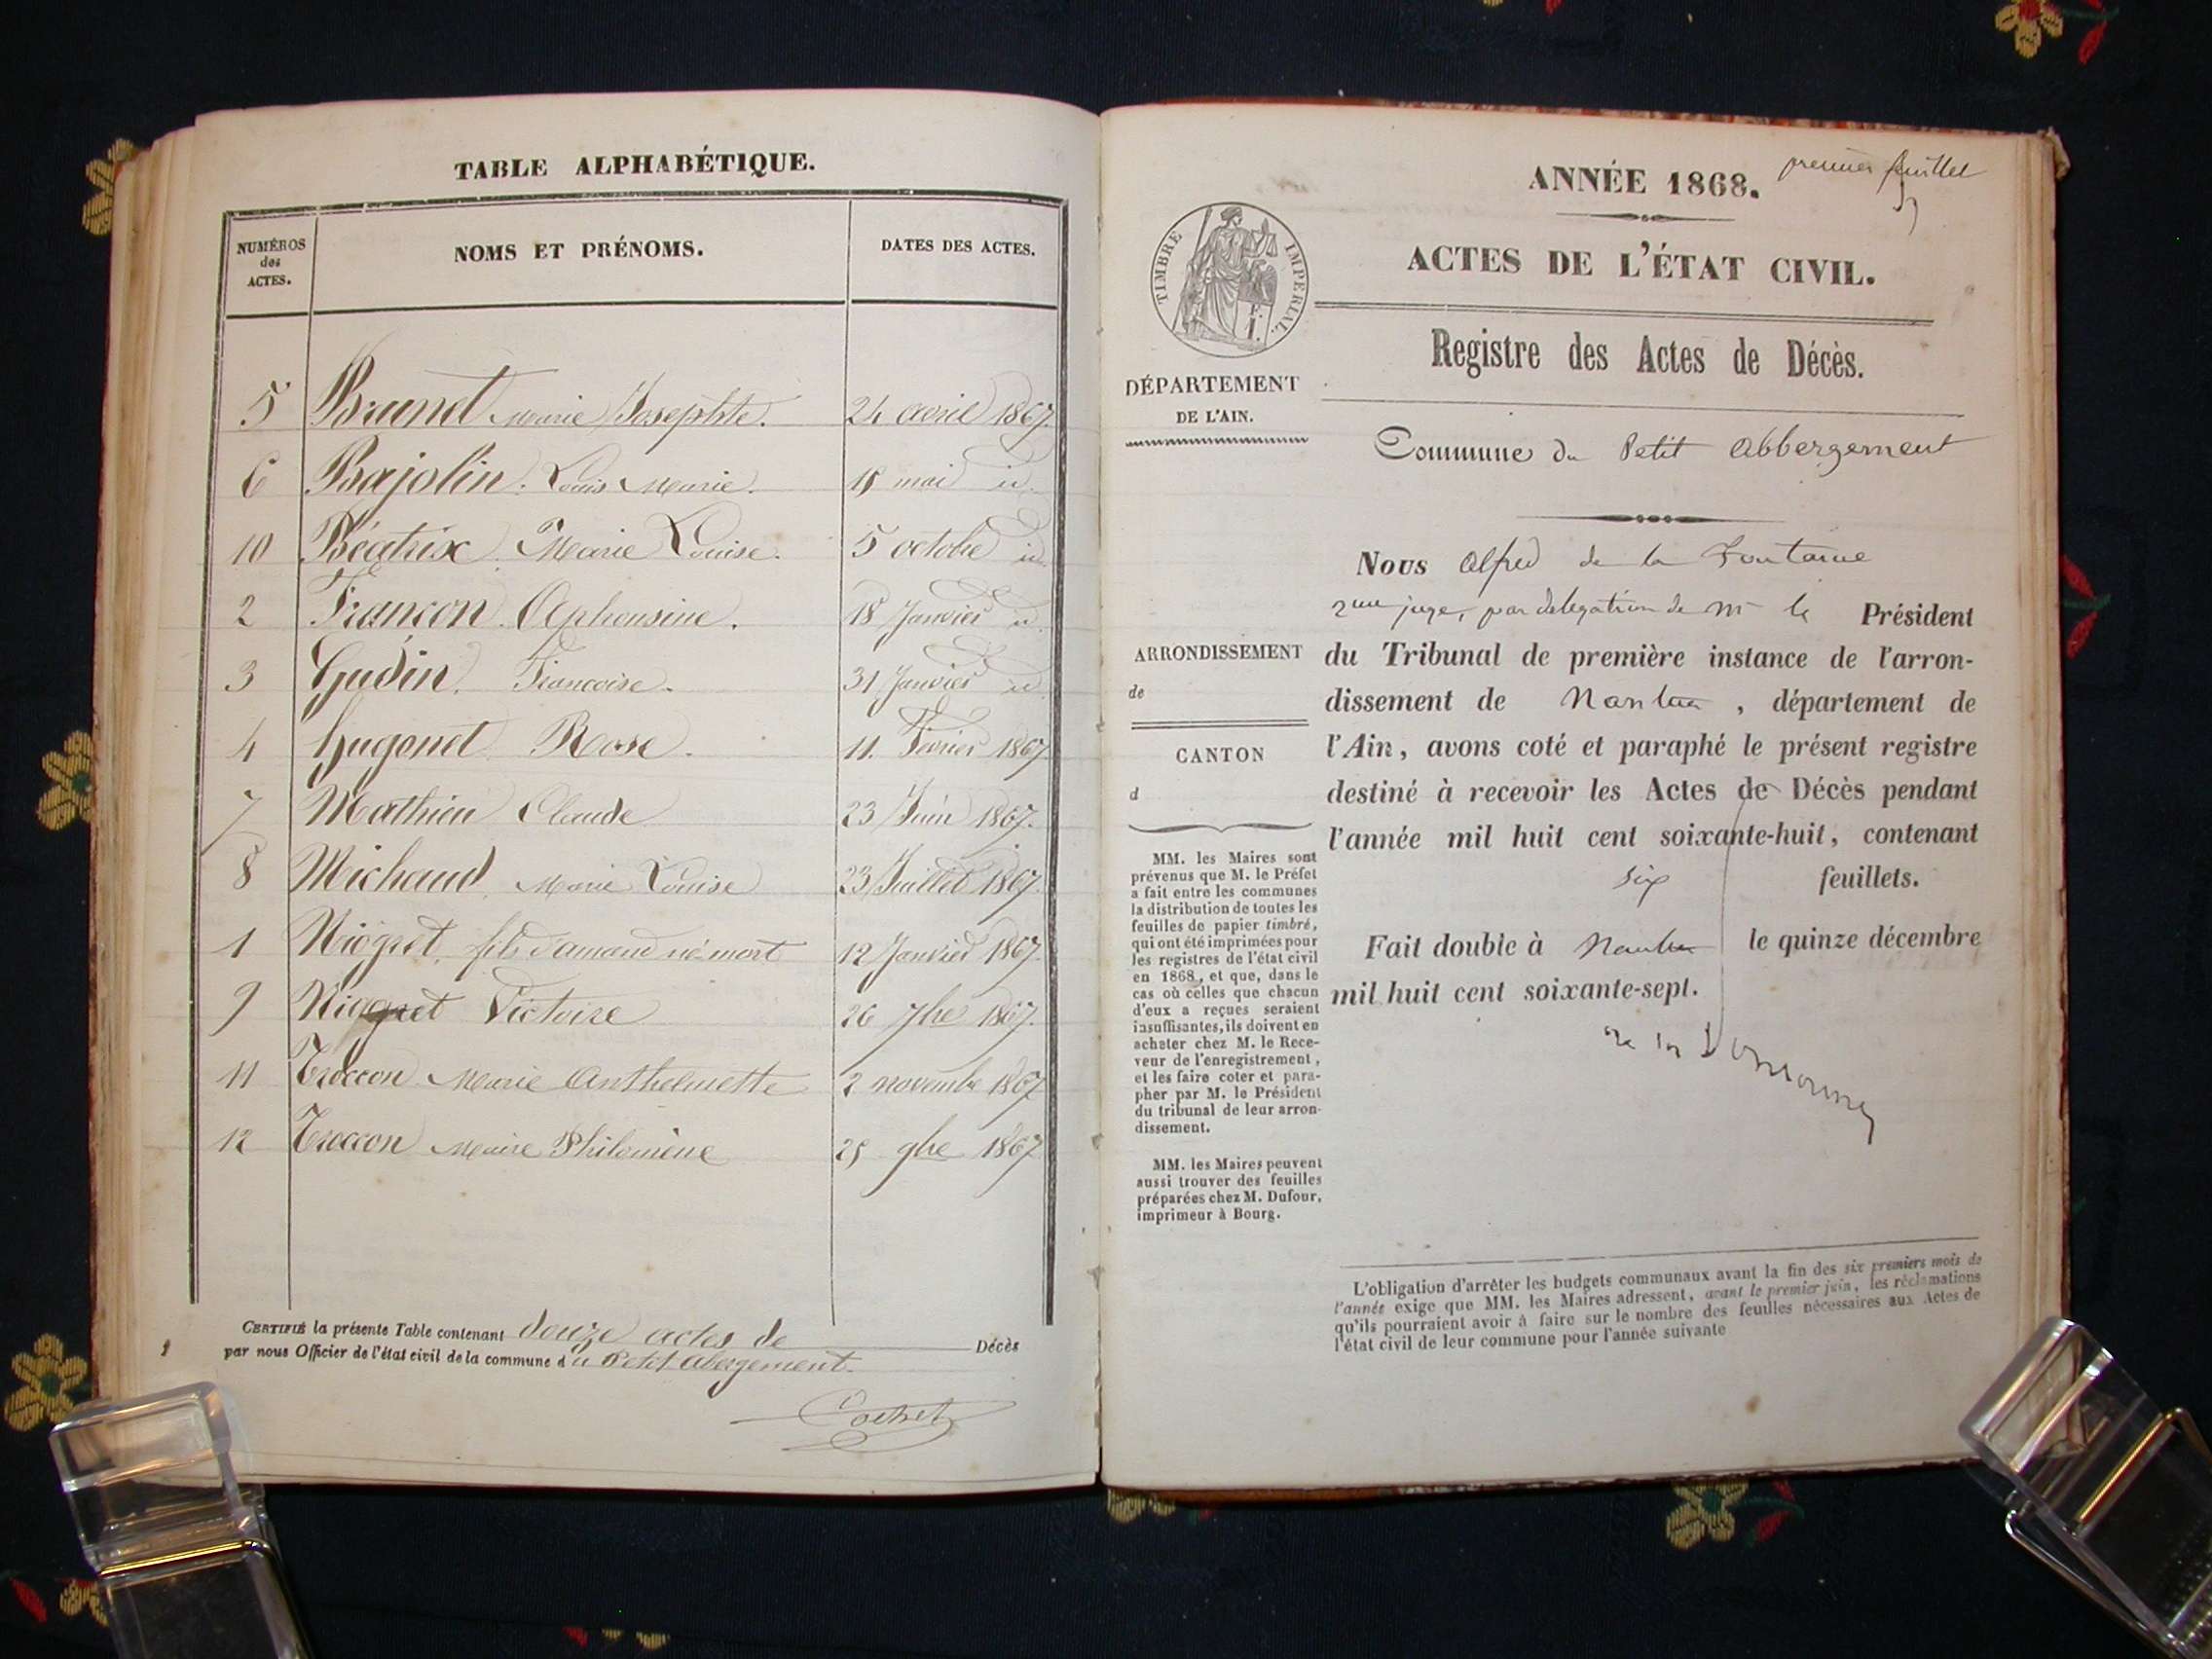 TABLE ALPHABÉTIQUE.
NUMÉROS des ACTES.
NOMS ET PRÉNOMS.
DATES DES ACTES.
5 Brunet Marie Josephte. 24 avril 1867
6 Bajolin. Louis Marie. 15 mai id.
10 Béatrix. Marie Louise. 5 octobre id.
2 Françon Alphonsine. 18 Janvier id.
3 Gudin. Francoise. 31 Janvier id.
4 Hugonet Rose. 11. Février 1867
7 Mathieu Claude 23 Juin 1867.
8 Michaud Marie Louise 23 Juillet 1867.
1 Niogret, fils d'amand né mort 12 Janvier 1867.
9 Niogret Victoire 26 7bre 1867.
11 Troccon Marie Anthelmette 2 novembre 1867
12 Troccon Marie Philomène 25 9bre 1867
CERTIFIÉ la présente Table contenant douze actes de Décès
par nous Officier de l'état civil de la commune du Petit abergement.
premier feuillet
ANNÉE 1868.
ACTES DE L'ÉTAT CIVIL.
TIMBRE IMPÉRIAL.
Registre des Actes de Décès.
DÉPARTEMENT
DE L'AIN.
Commune du Petit Abbergement
Nous Alfred de la Fontaine
juge, par delegation de Mr le Président
du Tribunal de première instance de l'arron-
dissement de Nantua, département de
l'Ain, avons coté et paraphé le présent registre
destiné à recevoir les Actes de Décès pendant
l'année mil huit cent soixante-huit, contenant
six feuillets.
Fait double à Nantua le quinze décembre
mil huit cent soixante-sept.
ARRONDISSEMENT
de
CANTON
d
MM. les Maires sont
prévenus que M. le Préfet
a fait entre les communes
la distribution de toutes les
feuilles de papier timbré,
qui ont été imprimées pour
les registres de l'état civil
en 1868, et que, dans le
cas où celles que chacun
d'eux a reçues seraient
insuffisantes, ils doivent en
acheter chez M. le Rece-
veur de l'enregistrement,
et les faire coter et para-
pher par M. le Président
du tribunal de leur arron-
dissement.
MM. les Maires peuvent
aussi trouver des feuilles
préparées chez M. Dufour,
imprimeur à Bourg.
L'obligation d'arrêter les budgets communaux avant la fin des six premiers mois de
l'année exige que MM. les Maires adressent, avant le premier juin, les réclamations
qu'ils pourraient avoir à faire sur le nombre des feuilles nécessaires aux Actes de
l'état civil de leur commune pour l'année suivante